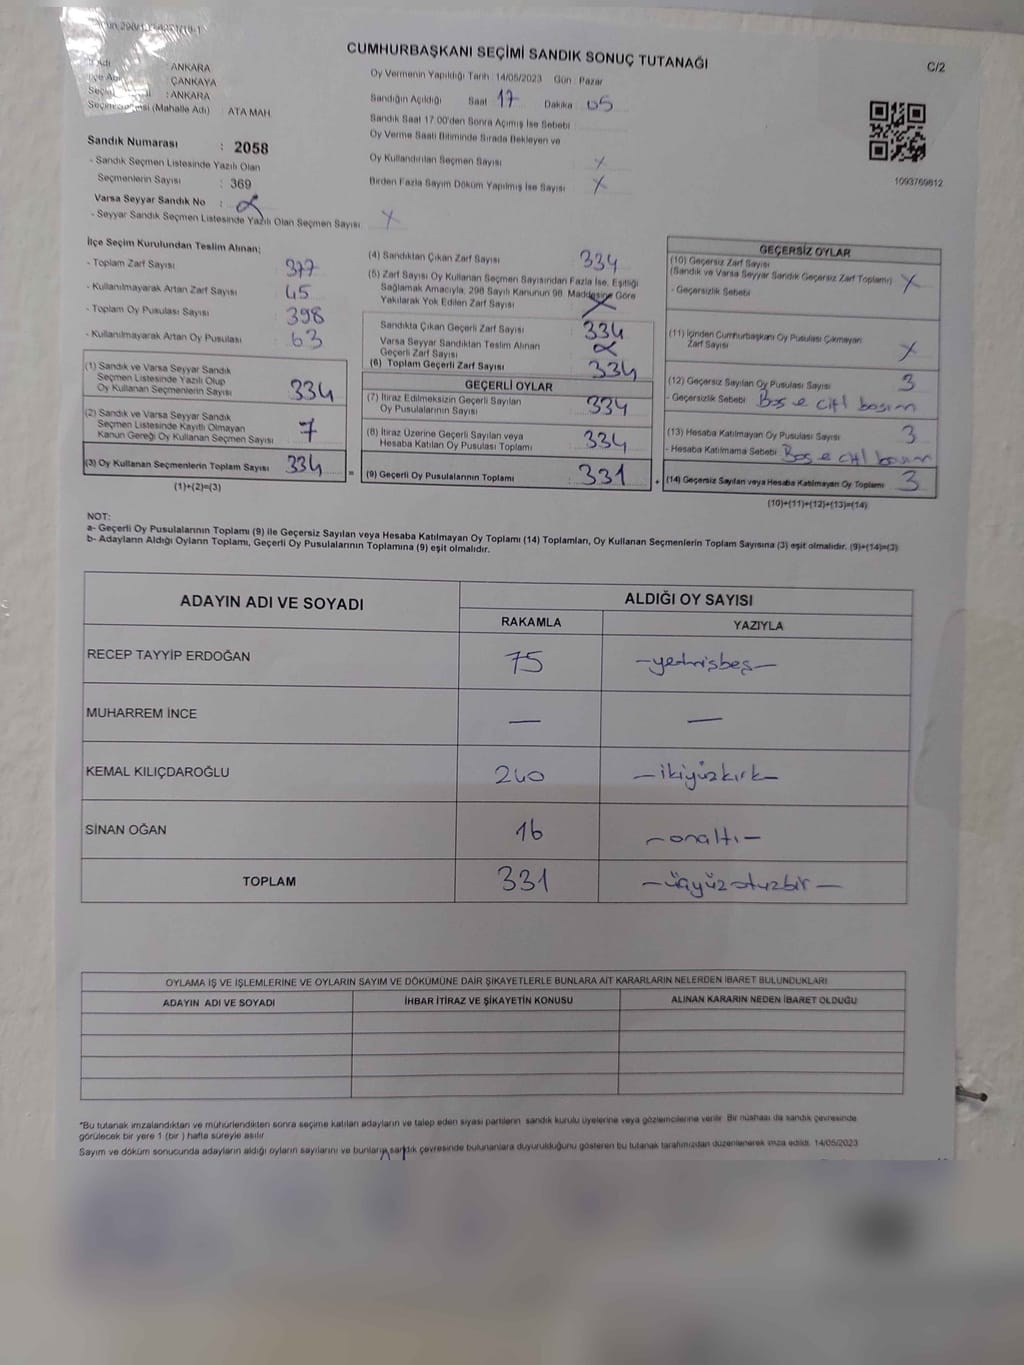 CUMHURBAŞKANI SEÇİMİ SANDIK SONUÇ TUTANAĞI
C/2
: ANKARA
: ÇANKAYA
: ANKARA
(Mahalle Adı) : ATA MAH
Oy Vermenin Yapıldığı Tarih : 14/05/2023 Gün : Pazar
Sandığın Açıldığı Saat 17 Dakika 05
Sandık Saat 17.00'den Sonra Açımış İse Sebebi :
Oy Verme Saati Bitiminde Sırada Bekleyen ve
Oy Kullandırılan Seçmen Sayısı : X
Birden Fazla Sayım Döküm Yapılmış İse Sayısı X
1093769812
Sandık Numarası : 2058
- Sandık Seçmen Listesinde Yazılı Olan
Seçmenlerin Sayısı : 369
Varsa Seyyar Sandık No :
- Seyyar Sandık Seçmen Listesinde Yazılı Olan Seçmen Sayısı X
İlçe Seçim Kurulundan Teslim Alınan;
- Toplam Zarf Sayısı : 377
- Kullanılmayarak Artan Zarf Sayısı : 45
- Toplam Oy Pusulası Sayısı : 398
- Kullanılmayarak Artan Oy Pusulası : 63
(1) Sandık ve Varsa Seyyar Sandık
Seçmen Listesinde Yazılı Olup
Oy Kullanan Seçmenlerin Sayısı : 334
(2) Sandık ve Varsa Seyyar Sandık
Seçmen Listesinde Kayıtlı Olmayan
Kanun Gereği Oy Kullanan Seçmen Sayısı : 7
(3) Oy Kullanan Seçmenlerin Toplam Sayısı : 334
(1)+(2)=(3)
(4) Sandıktan Çıkan Zarf Sayısı : 334
(5) Zarf Sayısı Oy Kullanan Seçmen Sayısından Fazla İse, Eşitliği
Sağlamak Amacıyla, 298 Sayılı Kanunun 98. Maddesine Göre
Yakılarak Yok Edilen Zarf Sayısı X
Sandıkta Çıkan Geçerli Zarf Sayısı : 334
Varsa Seyyar Sandıktan Teslim Alınan
Geçerli Zarf Sayısı
(6) Toplam Geçerli Zarf Sayısı : 334
GEÇERLİ OYLAR
(7) İtiraz Edilmeksizin Geçerli Sayılan
Oy Pusulalarının Sayısı : 334
(8) İtiraz Üzerine Geçerli Sayılan veya
Hesaba Katılan Oy Pusulası Toplamı : 334
= (9) Geçerli Oy Pusulalarının Toplamı : 331 +
GEÇERSİZ OYLAR
(10) Geçersiz Zarf Sayısı
(Sandık ve Varsa Seyyar Sandık Geçersiz Zarf Toplamı) : X
- Geçersizlik Sebebi :
(11) İçinden Cumhurbaşkanı Oy Pusulası Çıkmayan
Zarf Sayısı : X
(12) Geçersiz Sayılan Oy Pusulası Sayısı : 3
- Geçersizlik Sebebi : Boş
(13) Hesaba Katılmayan Oy Pusulası Sayısı : 3
- Hesaba Katılmama Sebebi : Boş
(14) Geçersiz Sayılan veya Hesaba Katılmayan Oy Toplamı : 3
(10)+(11)+(12)+(13)=(14)
NOT:
a- Geçerli Oy Pusulalarının Toplamı (9) ile Geçersiz Sayılan veya Hesaba Katılmayan Oy Toplamı (14) Toplamları, Oy Kullanan Seçmenlerin Toplam Sayısına (3) eşit olmalıdır. (9)+(14)=(3)
b- Adayların Aldığı Oyların Toplamı, Geçerli Oy Pusulalarının Toplamına (9) eşit olmalıdır.
ADAYIN ADI VE SOYADI
ALDIĞI OY SAYISI
RAKAMLA YAZIYLA
RECEP TAYYİP ERDOĞAN 75 —yetmişbeş—
MUHARREM İNCE — —
KEMAL KILIÇDAROĞLU 240 —ikiyüzkırk—
SİNAN OĞAN 16 —onaltı—
TOPLAM 331 —üçyüzotuzbir—
OYLAMA İŞ VE İŞLEMLERİNE VE OYLARIN SAYIM VE DÖKÜMÜNE DAİR ŞİKAYETLERLE BUNLARA AİT KARARLARIN NELERDEN İBARET BULUNDUKLARI
ADAYIN ADI VE SOYADI İHBAR İTİRAZ VE ŞİKAYETİN KONUSU ALINAN KARARIN NEDEN İBARET OLDUĞU
*Bu tutanak imzalandıktan ve mühürlendikten sonra seçime katılan adayların ve talep eden siyasi partilerin sandık kurulu üyelerine veya gözlemcilerine verilir. Bir nüshası da sandık çevresinde
görülecek bir yere 1 (bir ) hafta süreyle asılır
Sayım ve döküm sonucunda adayların aldığı oyların sayılarını ve bunların sandık çevresinde bulunanlara duyurulduğunu gösteren bu tutanak tarafımızdan düzenlenerek imza edildi. 14/05/2023